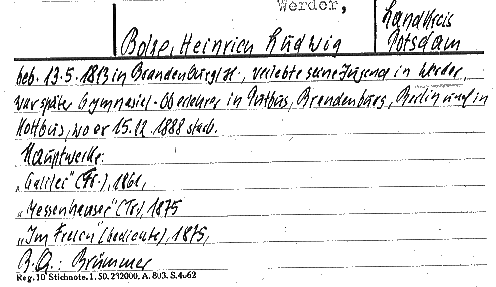 Werder,
Landkreis
Potsdam
Bolze, Heinrich Ludwig
geb. 13.5.1813 in Brandenburg/H., verlebte seine Jugend in Werder,
war später Gymnasial-Oberlehrer in Putbus, Brandenburg, Berlin und in
Kottbus, wo er 15.12.1888 starb.
Hauptwerke:
„Galilei" (Tr.), 1861,
„Messenhauser" (Tr.), 1875
„Im Freien" (Gedichte), 1875,
B.A.: Brümmer
Reg. 10 Stichnote. 1. 50. 232000. A. 803. S. 4. 62